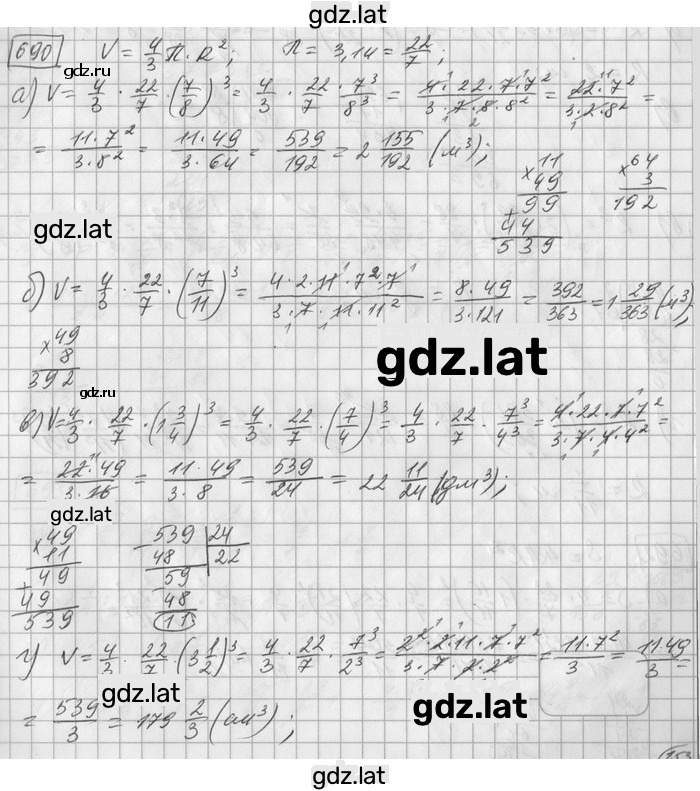 gdz.lat
690 V = 4/3 П·R²; П = 3,14 = 22/7;
gdz.ru
а) V = 4/3 · 22/7 · (7/8)³ = 4/3 · 22/7 · 7³/8³ = 4·22·7·7²/3·7·8·8² = 22·7²/3·2·8² =
= 11·7²/3·8² = 11·49/3·64 = 539/192 = 2 155/192 (м³);
×11 ×64
49 3
99 192
+44
539
gdz.lat
gdz.lat
б) V = 4/3 · 22/7 · (7/11)³ = 4·2·11·7²·7/3·7·11·11² = 8·49/3·121 = 392/363 = 1 29/363 (м³);
×49
8
392
gdz.lat
gdz.ru
в) V = 4/3 · 22/7 · (1 3/4)³ = 4/3 · 22/7 · (7/4)³ = 4/3 · 22/7 · 7³/4³ = 4·22·7·7²/3·7·4·4² =
= 22·49/3·16 = 11·49/3·8 = 539/24 = 22 11/24 (дм³);
gdz.lat
gdz.lat
×49 539 24
11 48 22
49 59
+49 48
539 11
г) V = 4/3 · 22/7 · (3 1/2)³ = 4/3 · 22/7 · 7³/2³ = 2²·2·11·7·7²/3·7·2·2² = 11·7²/3 = 11·49/3 =
gdz.lat
gdz.lat
= 539/3 = 179 2/3 (см³);
153
gdz.lat